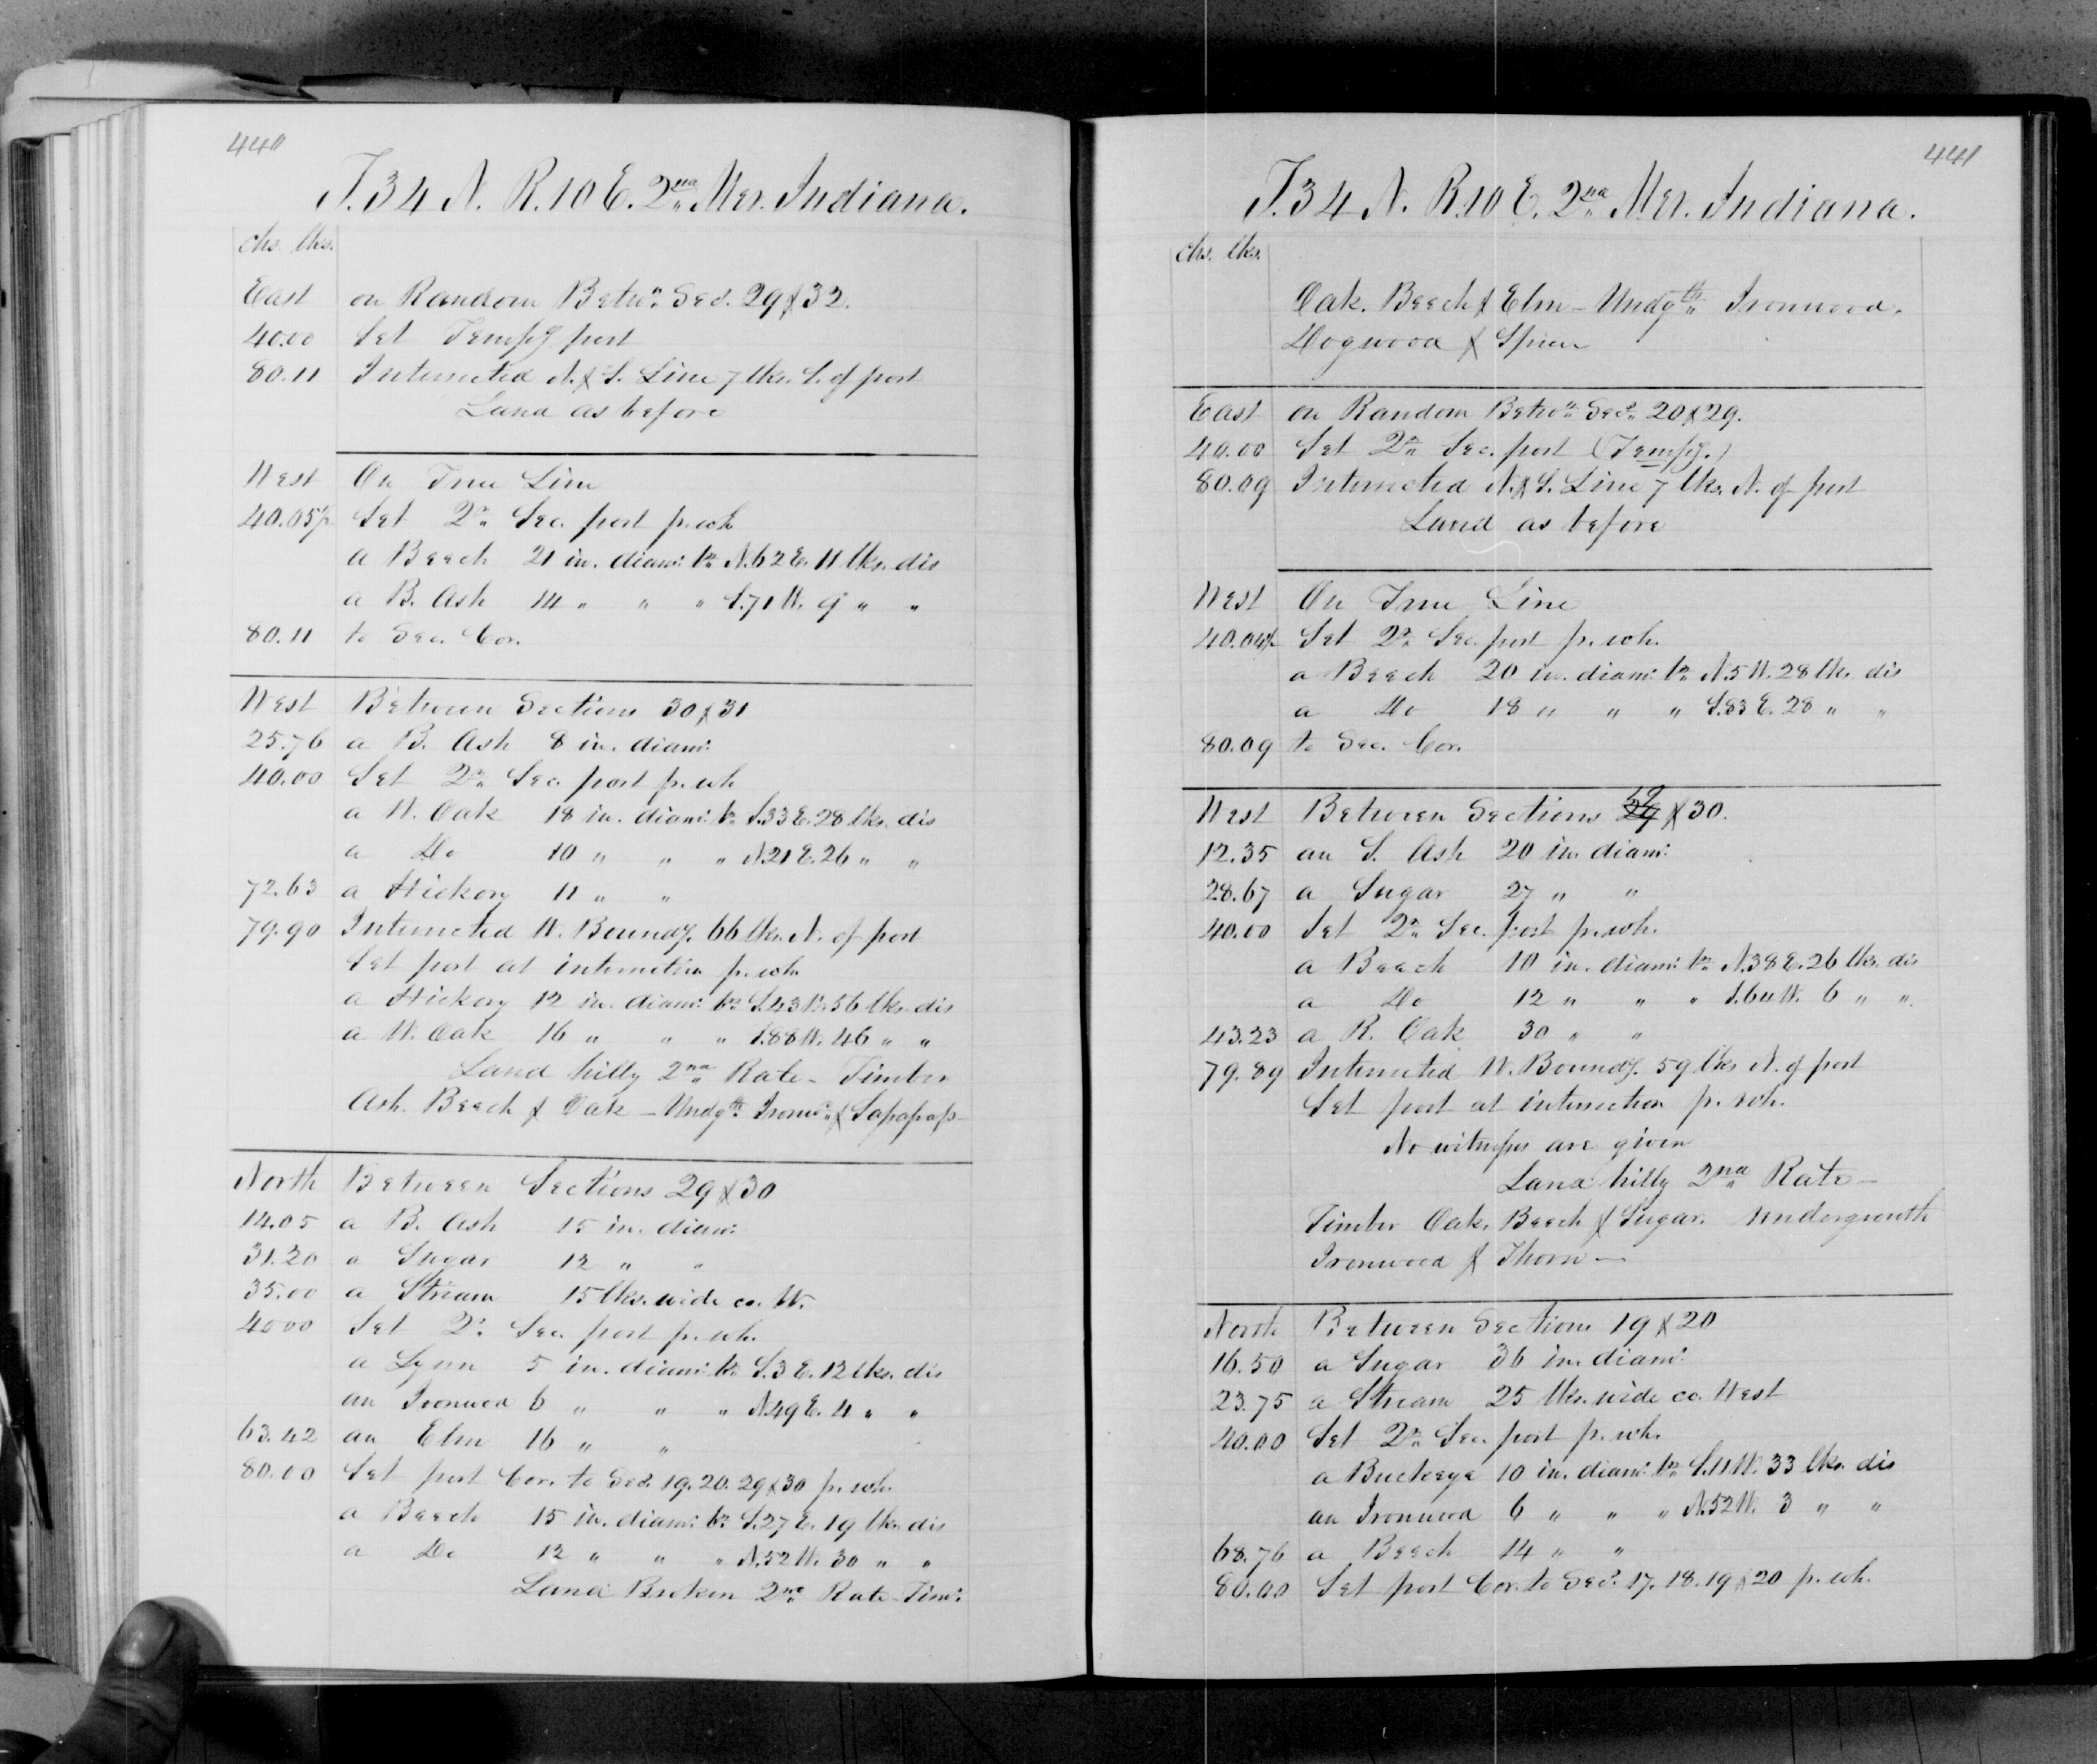 440
T. 34 N. R. 10 E. 2nd Mer. Indiana.
chs. lks.
East on Random Betwn. Secs. 29 & 32.
40.00 Set Tempy post
80.11 Intersected N. & S. Line 7 lks. S. of post
Land as before
West On True Line
40.05½ Set Qr. Sec. post fr. wh
a Beech 21 in. diam: brs N. 62 E. 11 lks. dis
a B. Ash 14 " " " S. 71 W. 9 " "
80.11 to Sec. Cor.
West Between Sections 30 & 31
25.76 a B. Ash 8 in. diam:
40.00 Set Qr. Sec. post fr. wh
a W. Oak 18 in. diam: br. S. 33 E. 28 lks. dis
a Do 10 " " " N. 21 E. 26 " "
72.63 a Hickory 11 " "
79.90 Intersected W. Boundy. 66 lks. N. of post
Set post at intersection fr. wh
a Hickory 12 in. diam: brs S. 43 W. 56 lks. dis
a W. Oak 16 " " " S. 88 W. 46 " "
Land hilly 2nd Rate - Timber
Ash. Beech & Oak - Undgth. Ironwd. & Sassafrass
North Between Sections 29 & 30
14.05 a B. Ash 15 in. diam:
31.20 a Sugar 12 " "
35.00 a Stream 15 lks. wide co. W.
40.00 Set Qr. Sec. post fr. wh.
a Lynn 5 in. diam: br. S. 3 E. 12 lks. dis
an Ironwood 6 " " " N. 49 E. 4 " "
63.42 an Elm 16 " "
80.00 Set post Cor. to Secs. 19. 20. 29 & 30 fr. wh.
a Beech 15 in. diam: br. S. 27 E. 19 lks. dis
a Do 12 " " " N. 52 W. 30 " "
Land Broken 2nd Rate - Tim:
441
T. 34 N. R. 10 E. 2nd Mer. Indiana.
chs. lks.
Oak. Beech & Elm - Undgth. Ironwood.
Dogwood & Spice
East on Random Betwn. Secs. 20 & 29.
40.00 Set Qr. Sec. post (Tempy.)
80.09 Intersected N. & S. Line 7 lks. N. of post
Land as before
West On True Line
40.04½ Set Qr. Sec. post fr. wh.
a Beech 20 in. diam: br. N. 5 W. 28 lks. dis
a Do 18 " " " S. 83 E. 28 " "
80.09 to Sec. Cor.
West Between Sections 19 & 30.
12.35 an S. Ash 20 in. diam:
28.67 a Sugar 27 " "
40.00 Set Qr. Sec. post fr. wh.
a Beech 10 in. diam: br. N. 38 E. 26 lks. dis
a Do 12 " " " S. 64 W. 6 " "
43.23 a R. Oak 30 " "
79.89 Intersected W. Boundy. 59 lks N. of post
Set post at intersection fr. wh.
No witnesses are given
Land hilly 2nd Rate -
Timber Oak. Beech & Sugar. Undergrowth
Ironwood & Thorn -
North Between Sections 19 & 20
16.50 a Sugar 36 in. diam:
23.75 a Stream 25 lks. wide co. West
40.00 Set Qr. Sec. post fr. wh.
a Buckeye 10 in. diam: br. S. 11 W. 33 lks. dis
an Ironwood 6 " " " N. 52 W. 3 " "
68.76 a Beech 14 " "
80.00 Set post Cor. to Secs. 17. 18. 19 & 20 fr. wh.